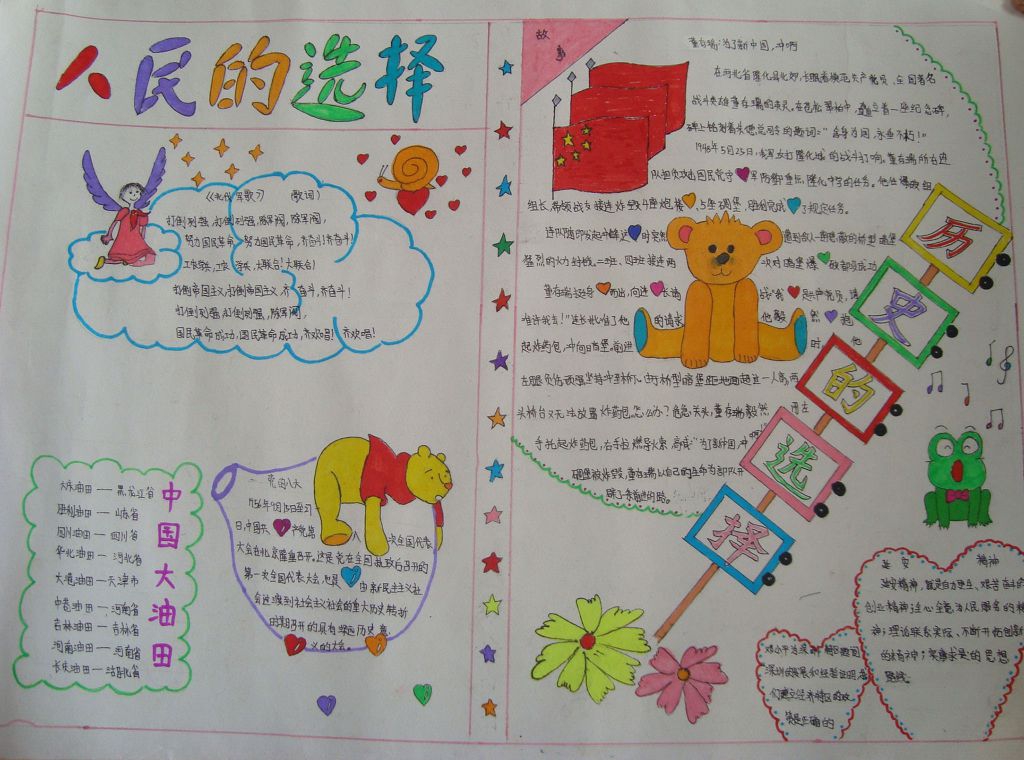 人民的选择
《北伐军歌》 (歌词)
打倒列强,打倒列强,除军阀,除军阀,
努力国民革命,努力国民革命,齐奋斗!齐奋斗!
工农学兵,工农学兵,大联合!大联合!
打倒帝国主义,打倒帝国主义,齐奋斗,齐奋斗!
打倒列强,打倒列强,除军阀,
国民革命成功,国民革命成功,齐欢唱!齐欢唱!
中国大油田
大庆油田——黑龙江省
胜利油田——山东省
四川油田——四川省
华北油田——河北省
大港油田—天津市
中原油田—河南省
吉林油田—吉林省
河南油田—河南省
长庆油田—
党的八大
1956年9月15日至
日,中国共产党第八次全国代表
大会在北京隆重召开。这是党在全国执政后召开的
第一次全国代表大会,也是由新民主主义社
会过渡到社会主义社会的重大历史转动
时期召开的具有深远历史意
义的大会。
故事
董存瑞:为了新中国,冲啊
在河北省隆化县北郊,长眠着模范共产党员、全国著名
战斗英雄董存瑞的英灵。在苍松翠柏中,矗立着一座纪念碑,
碑上铭刻着朱德总司令的题词:“舍身为国,永垂不朽!”
1948年5月25日,我军攻打隆化城的战斗打响。董存瑞所在连
队担负攻击国民党守军防御重点,隆化中学的任务。他任爆破组
组长,带领战友接连炸毁4座炮楼,5座碉堡,胜利完成了规定任务。
连队随即发起冲锋,突然遭到敌人一隐蔽的桥型暗堡
猛烈的火力封锁。二班、四班接连两次对暗堡爆破都未成功
董存瑞挺身而出,向连长请战:“我是共产党员,请
准许我去!”连长批准了他的请求。他毅然抱
起炸药包,冲向暗堡。前进时,他
左腿负伤,顽强坚持冲到桥下。由于桥型暗堡距地面超过一人高,两
头桥台又无法放置炸药包。怎么办?危急关头,董存瑞毅然用左
手托起炸药包,右手拉燃导火索,高喊:“为了新中国,冲啊!”
碉堡被炸毁,董存瑞以自己的生命为部队开
辟了前进的路。
历史的选择
延安精神
延安精神,就是自力更生、艰苦奋斗的
创业精神;全心全意为人民服务的精
神;理论联系实际、不断开拓创新
的精神;实事求是的思想
路线。
邓小平为深圳特区题词:
深圳的发展和经验证明,我
们建立经济特区的政
策是正确的